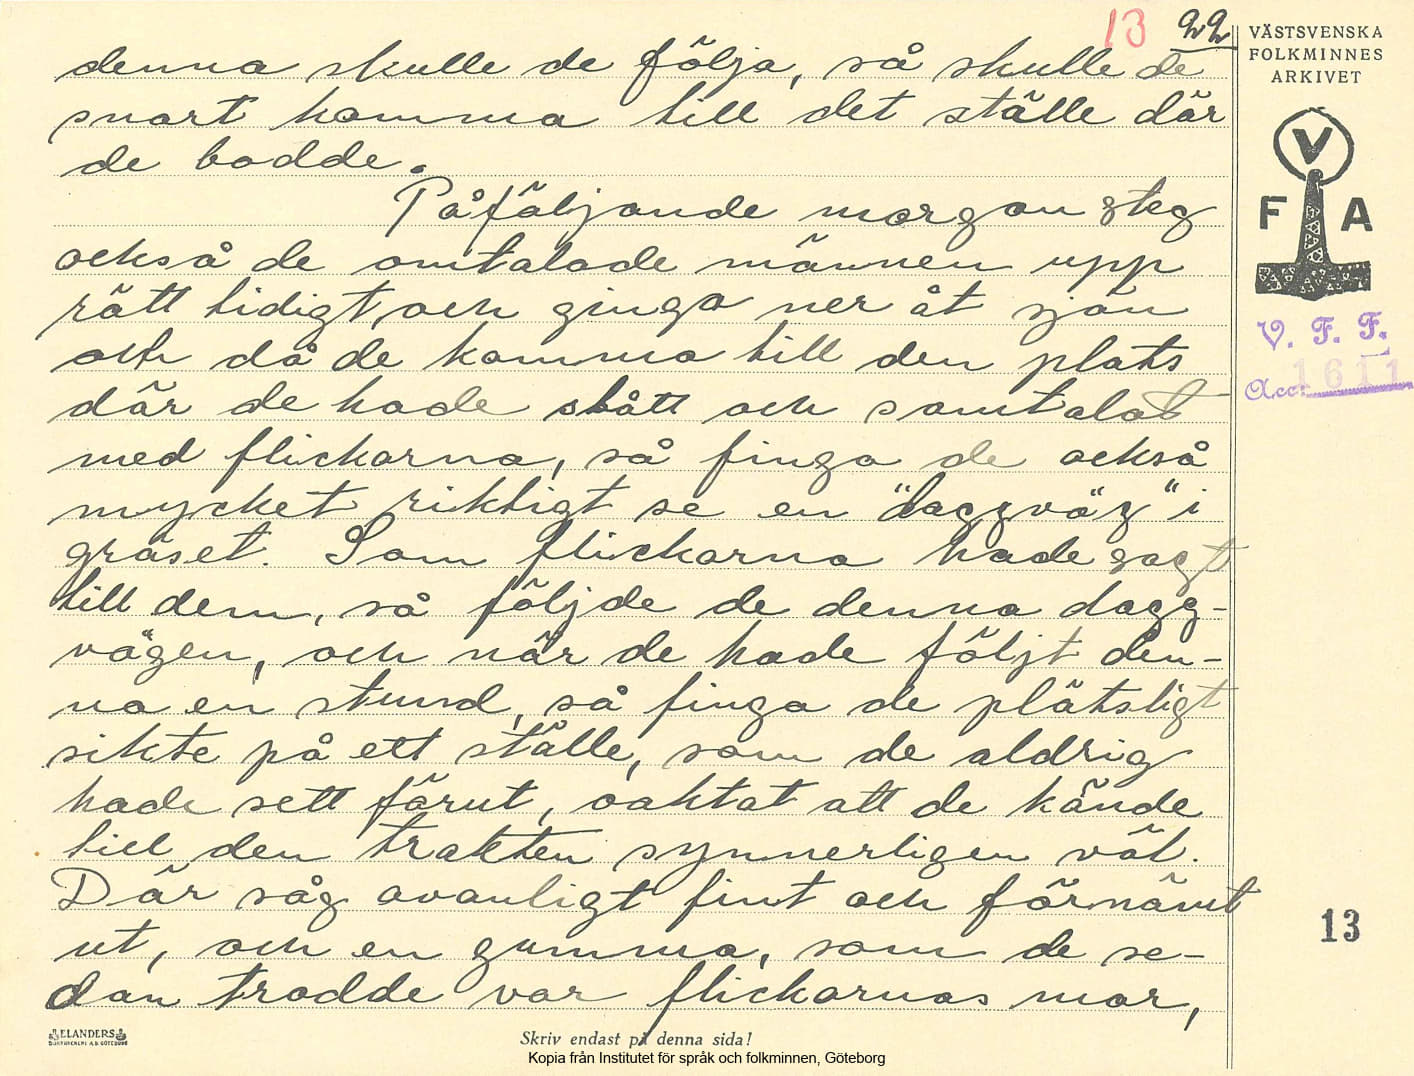 13 22
denna skulle de följa, så skulle de
snart komma till det ställe där
de bodde.
Påföljande morgon steg
också de omtalade männen upp
rätt tidigt, och gingo ner åt sjön
och då de kommo till den plats
där de hade stått och samtalat
med flickorna, så fingo de också
mycket riktigt se en "daggväg" i
gräset. Som flickorna hade sagt
till dem, så följde de denna dagg-
vägen, och när de hade följt den-
na en stund, så fingo de plötsligt
sikte på ett ställe, som de aldrig
hade sett förut, oaktat att de kände
till den trakten synnerligen väl.
Där såg ovanligt fint och förnämt
ut, och en gumma, som de se-
dan trodde var flickornas mor,
VÄSTSVENSKA
FOLKMINNES
ARKIVET
V
F A
V. F. F.
Acc: 1611
13
ELANDERS
BOKTRYCKERI A.B. GÖTEBORG
Skriv endast på denna sida!
Kopia från Institutet för språk och folkminnen, Göteborg